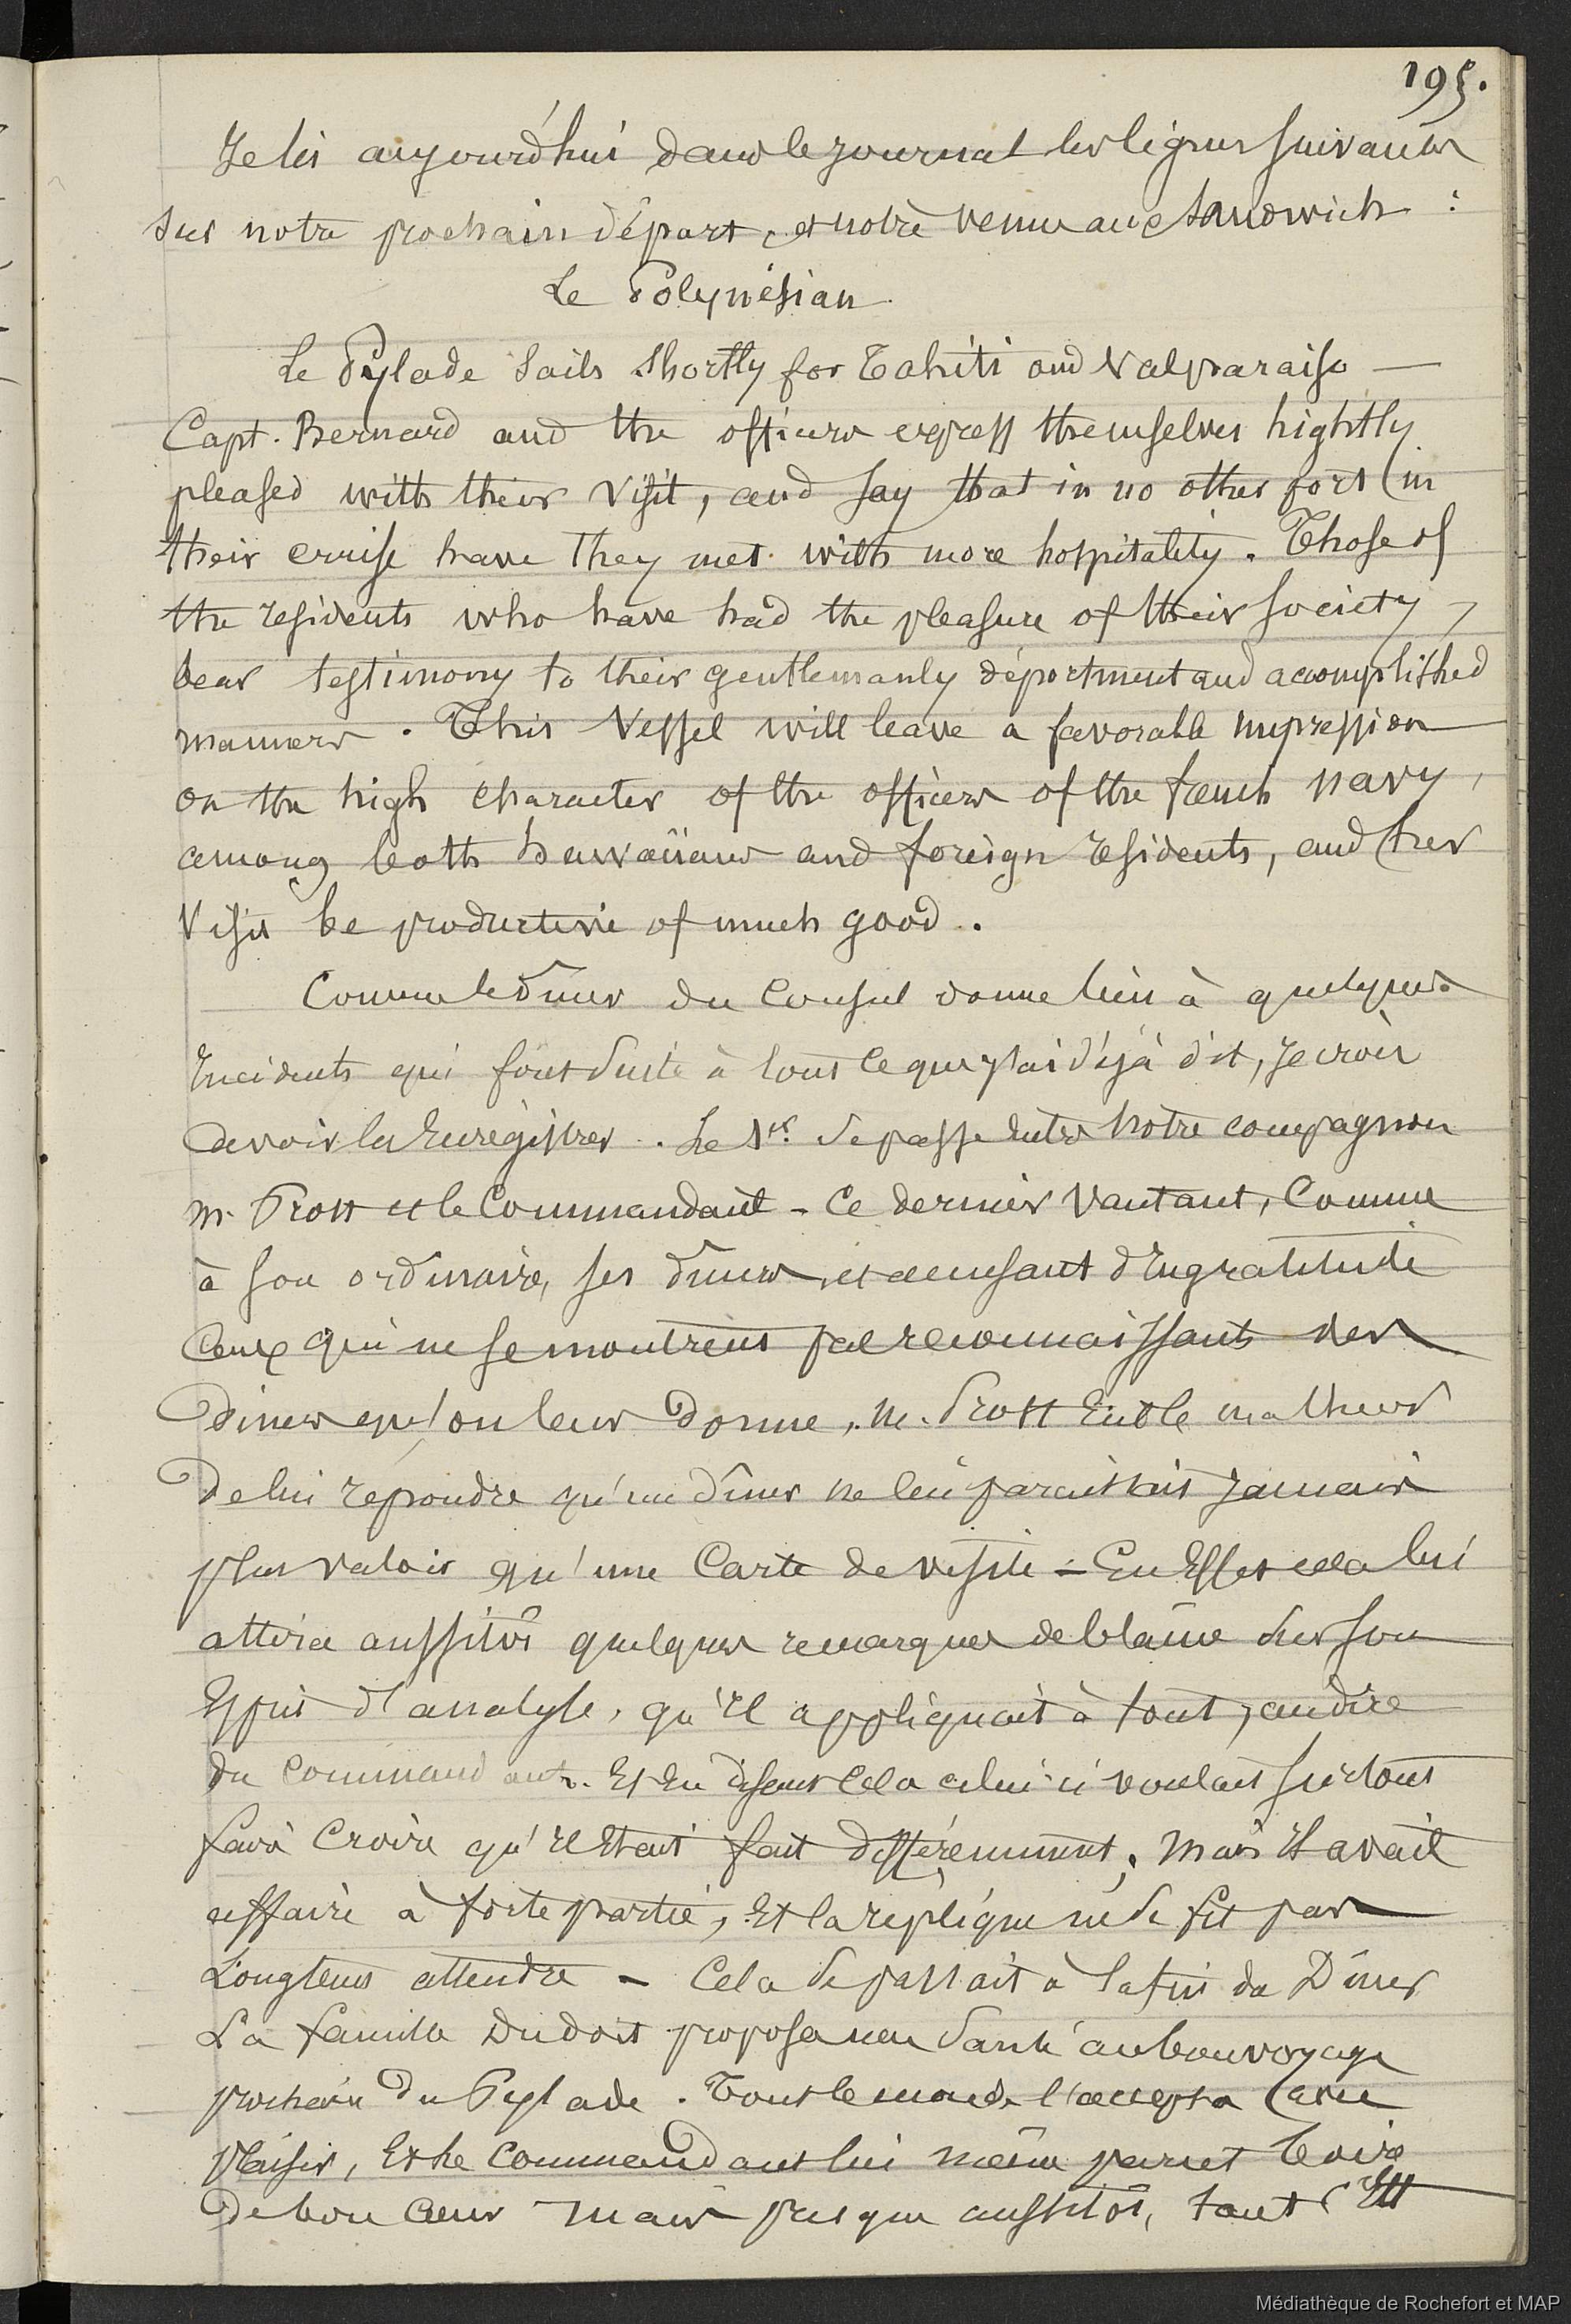 195.
Je lis aujourd'hui dans le journal les lignes suivantes
sur notre prochain départ, et notre venue aux Sandwich :
Le Polynésian
Le Pylade sails shortly for Tahiti and Valparaiso —
Capt. Bernard and the officers express themselves hightly
pleased with their visit, and say that in no other port in
their cruise have they met with more hospitality. Those of
the residents who have had the pleasure of their society,
bear testimony to their gentlemanly déportment and accomplished
manners. This vessel will leave a favorable impression
on the high character of the officers of the french navy,
among both hawaïians and foreign residents, and her
visit be productive of much good.
Comme le dîner du Consul donne lieu à quelques
Incidents qui font suite à tout ce que j'ai déjà dit, je crois
devoir les Enregistrer. Le 1er. se passe Entre notre compagnon
m. Prott et le Commandant - Ce dernier vantant, comme
à son ordinaire, ses dîners, et accusant d'Ingratitude
Ceux qui ne se montrent pas reconnaissants des
diners qu'on leur donne, m. Prott Eut le malheur
de lui répondre qu'un dîner ne lui paraissait jamais
plus valoir qu'une Carte de visite - En Effet cela lui
attira aussitôt quelques remarques de blâme sur son
Esprit d'analyse, qu'Il appliquait à tout, au dire
du commandant. Et En disant Cela celui-ci voulait surtout
faire Croire qu'Il Etait fait différemment. Mais Il avait
affaire à forte partie, Et la réplique ne se fit pas
Longtems attendre - Cela se passait à la fin du Dîner
La famille Dudoit proposa une santé au bon voyage
prochain du Pylade. Tout le monde l'accepta avec
plaisir, Et le Commandant lui même parut boire
de bon Cœur mais presque aussitôt, tout